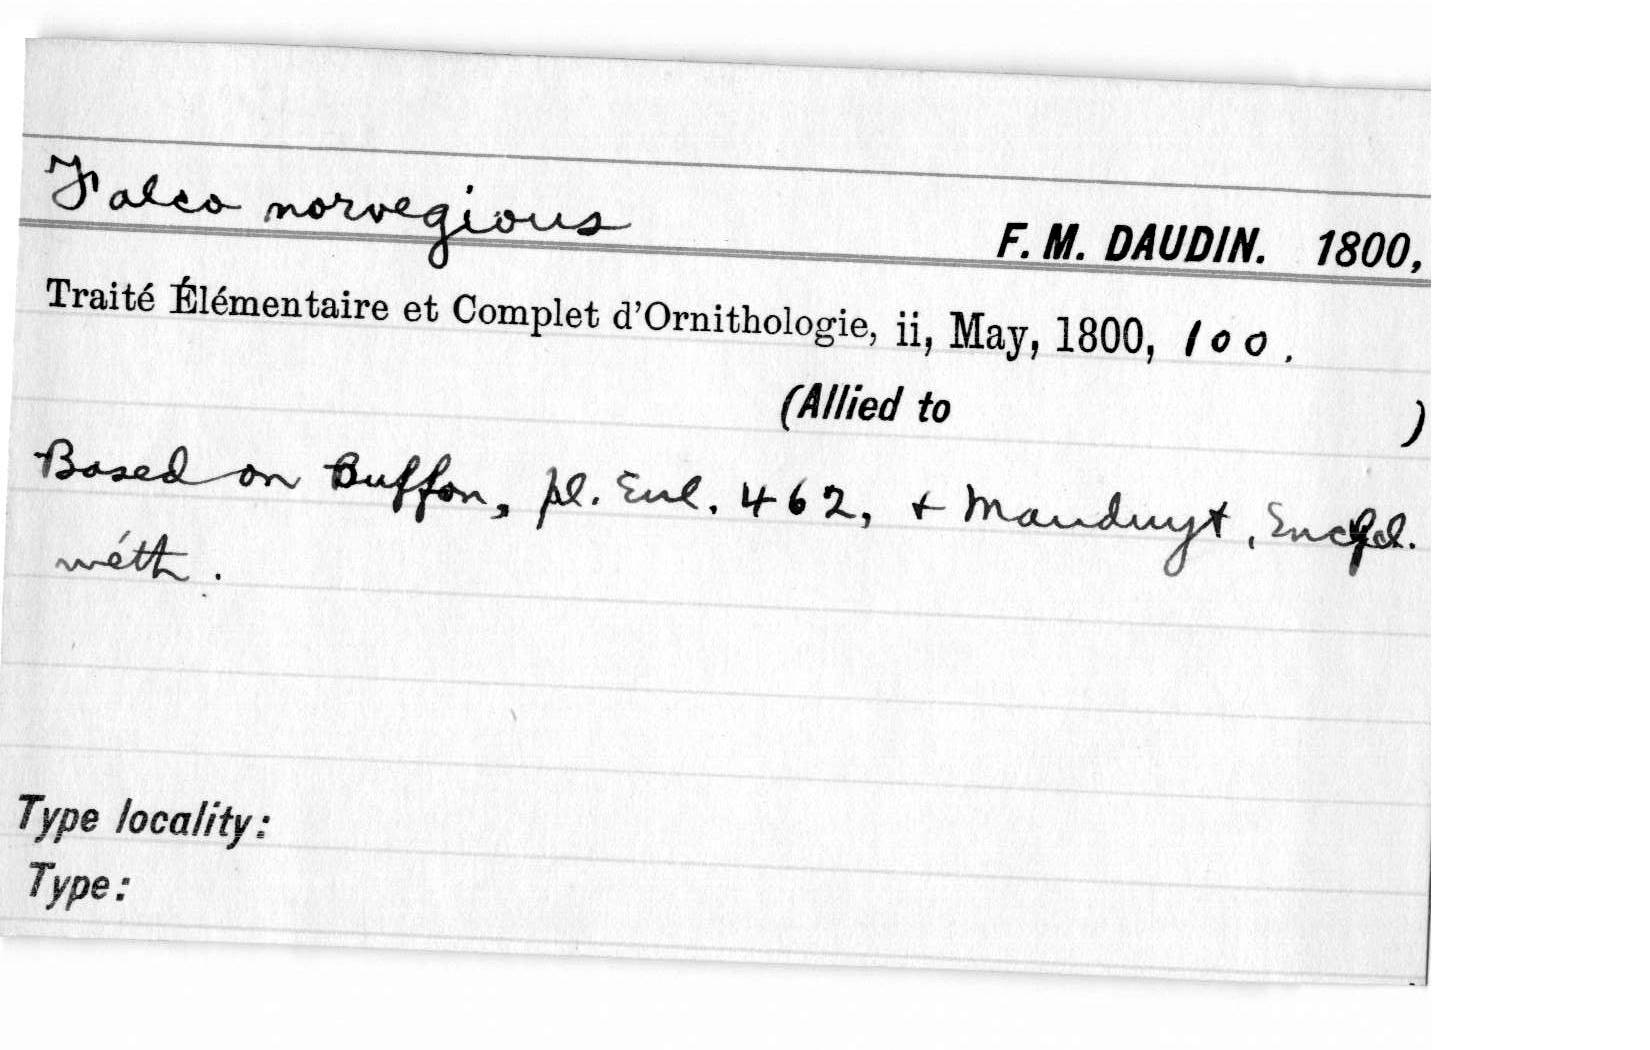 Falco norvegicus
F. M. DAUDIN. 1800,
Traité Élémentaire et Complet d'Ornithologie, ii, May, 1800, 100.
(Allied to )
Based on Buffon, pl. Enl. 462, + Mauduyt, Encycl.
méth.
Type locality:
Type: